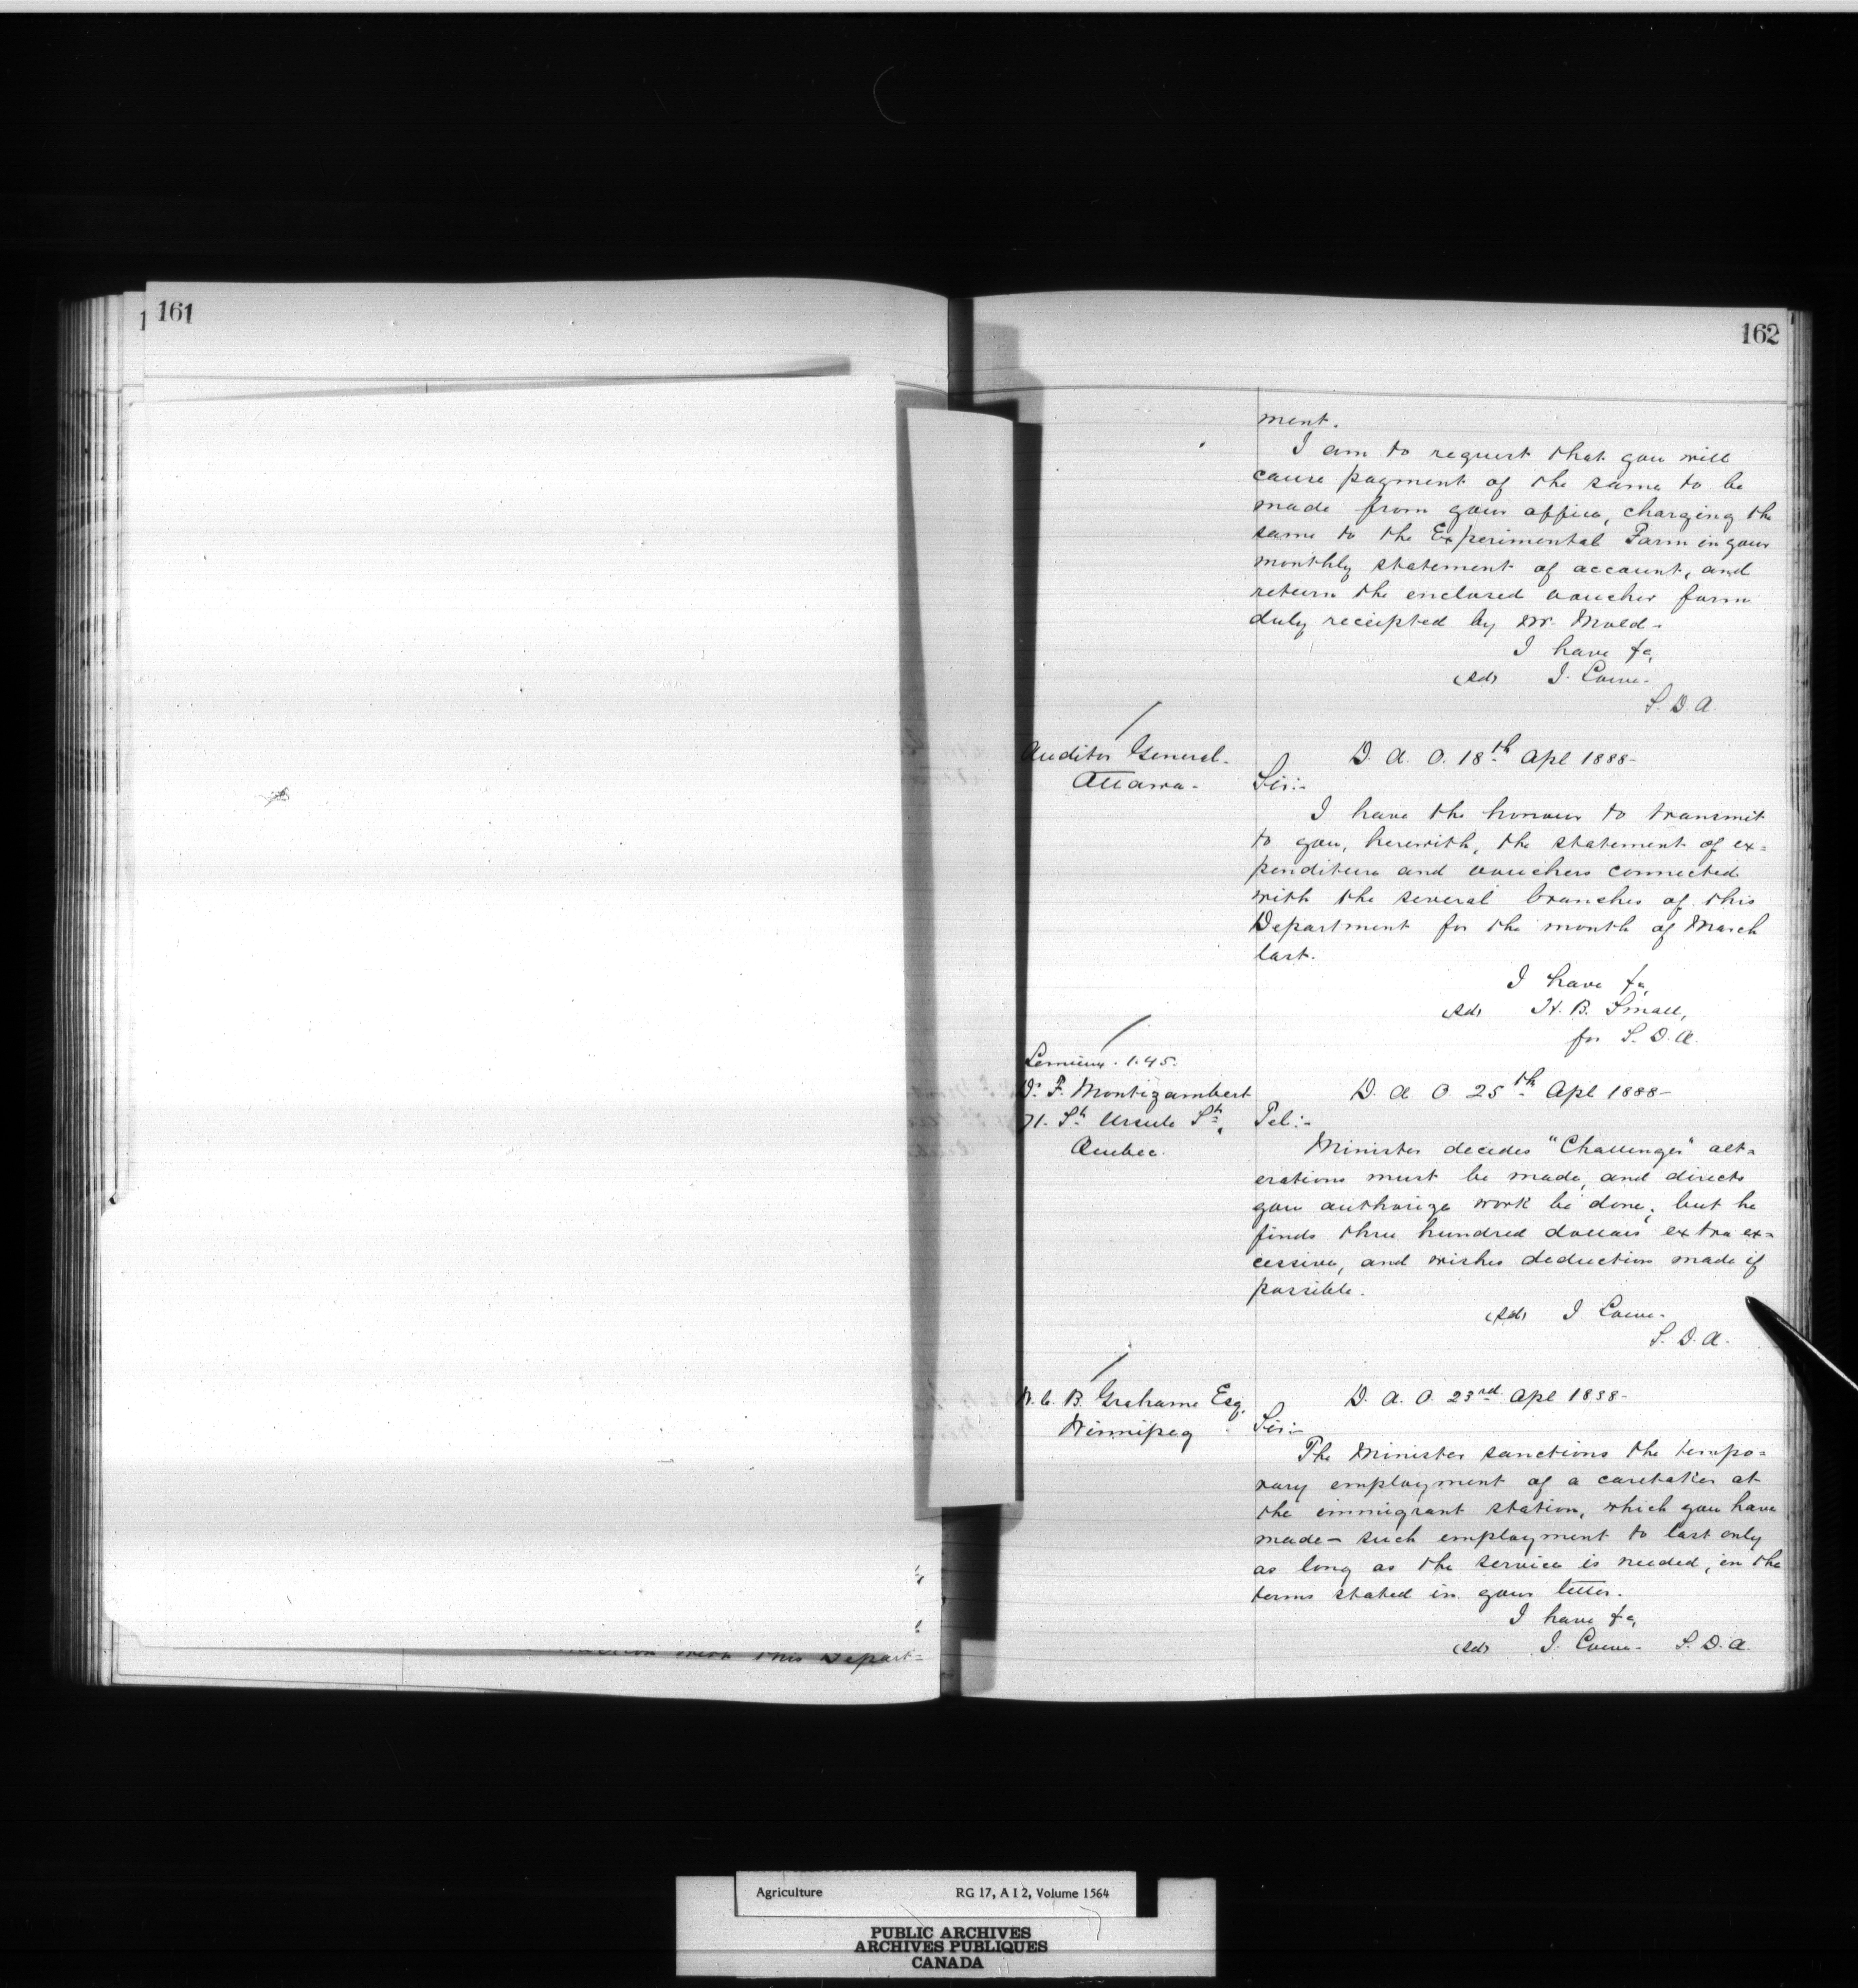 161
162
ment.
I am to request that you will
cause payment of the same to be
made from your office, charging the
same to the Experimental Farm in your
monthly statement of account, and
return the enclosed voucher form
duly receipted by Mr.
I have &c,
(sd) J. Lowe.
S. D. A.
Auditor General.
Ottawa.
D. A. O. 18th Apl 1888-
Sir:-
I have the honour to transmit
to you, herewith, the statement of ex=
penditure and vouchers connected
with the several branches of this
Department for the month of March
last.
I have &c,
(sd) H. B. Small,
for S. D. A.
Lemieux. 1.45.
Dr F. Montizambert
71. St Ursule St,
Quebec.
D. A. O. 25th Apl 1888-
Tel:-
Minister decides "Challenger" alt=
erations must be made, and directs
you authorize work be done; but he
finds three hundred dollars extra ex=
cessive, and wishes deduction made if
possible.
(sd) J Lowe.
S. D. A.
W. C. B. Grahame Esq.
Winnipeg
D. A. O. 23rd Apl 1888-
Sir:-
The Minister sanctions the tempo=
rary employment of a caretaker at
the immigrant station, which you have
made - such employment to last only
as long as the service is needed, in the
terms stated in your letter.
I have &c,
(sd) J. Lowe. S. D. A.
with this Depart=
Agriculture RG 17, A I 2, Volume 1564
PUBLIC ARCHIVES
ARCHIVES PUBLIQUES
CANADA